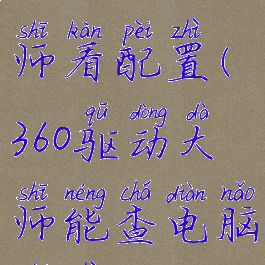 shī kàn pèi zhì
师看配置(
qū dòng dà
360驱动大
shī néng chá diàn nǎo
师能查电脑